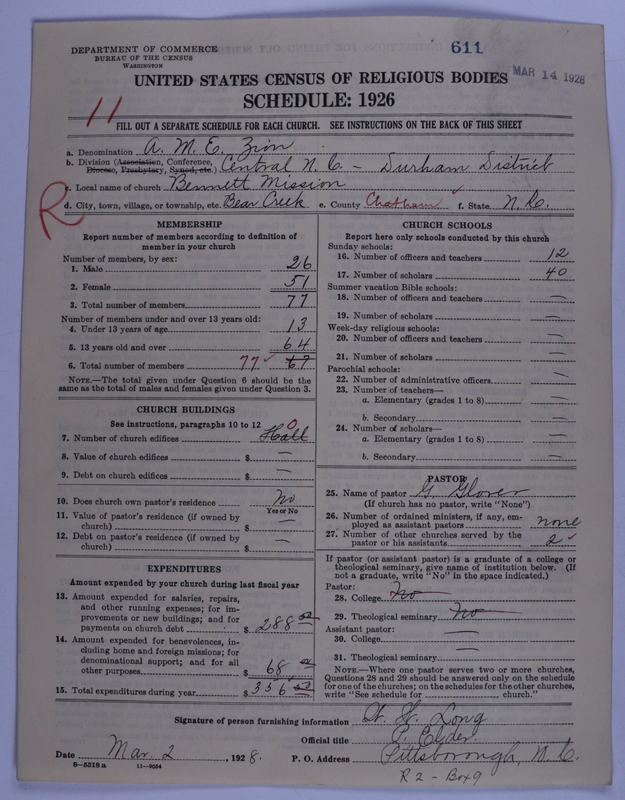 DEPARTMENT OF COMMERCE
BUREAU OF THE CENSUS
WASHINGTON
611
MAR 14 1928
UNITED STATES CENSUS OF RELIGIOUS BODIES
SCHEDULE: 1926
11
FILL OUT A SEPARATE SCHEDULE FOR EACH CHURCH. SEE INSTRUCTIONS ON THE BACK OF THIS SHEET
a. Denomination A. M. E. Zion
b. Division (Association, Conference, Diocese, Presbytery, Synod, etc.) Central N. C. - Durham District
c. Local name of church Bennett Mission
R
d. City, town, village, or township, etc. Bear Creek e. County Chatham f. State N. C.
MEMBERSHIP
Report number of members according to definition of
member in your church
Number of members, by sex:
1. Male 26
2. Female 51
3. Total number of members 77
Number of members under and over 13 years old:
4. Under 13 years of age 13
5. 13 years old and over 64
6. Total number of members 77 ✓ 67
NOTE.—The total given under Question 6 should be the
same as the total of males and females given under Question 3.
CHURCH BUILDINGS
See instructions, paragraphs 10 to 12
7. Number of church edifices Hall 0
8. Value of church edifices $ —
9. Debt on church edifices $ —
10. Does church own pastor's residence No
Yes or No
11. Value of pastor's residence (if owned by
church) $ —
12. Debt on pastor's residence (if owned by
church) $ —
EXPENDITURES
Amount expended by your church during last fiscal year
13. Amount expended for salaries, repairs,
and other running expenses; for im-
provements or new buildings; and for
payments on church debt $ 288
14. Amount expended for benevolences, in-
cluding home and foreign missions; for
denominational support; and for all
other purposes $ 68
15. Total expenditures during year $ 356
CHURCH SCHOOLS
Report here only schools conducted by this church
Sunday schools:
16. Number of officers and teachers 12
17. Number of scholars 40
Summer vacation Bible schools:
18. Number of officers and teachers —
19. Number of scholars —
Week-day religious schools:
20. Number of officers and teachers —
21. Number of scholars —
Parochial schools:
22. Number of administrative officers —
23. Number of teachers—
a. Elementary (grades 1 to 8) —
b. Secondary —
24. Number of scholars—
a. Elementary (grades 1 to 8) —
b. Secondary —
PASTOR
25. Name of pastor G. Glover
(If church has no pastor, write "None")
26. Number of ordained ministers, if any, em-
ployed as assistant pastors none
27. Number of other churches served by the
pastor or his assistants 2 ✓
If pastor (or assistant pastor) is a graduate of a college or
theological seminary, give name of institution below. (If
not a graduate, write "No" in the space indicated.)
Pastor:
28. College No
29. Theological seminary No
Assistant pastor:
30. College —
31. Theological seminary —
NOTE.—Where one pastor serves two or more churches,
Questions 28 and 29 should be answered only on the schedule
for one of the churches; on the schedules for the other churches,
write "See schedule for church."
Signature of person furnishing information W. H. Long
Official title P. Elder
Date Mar. 2, 1928. P. O. Address Pittsborough, N. C.
8-5318 a 11-9054
R 2 - Box 9